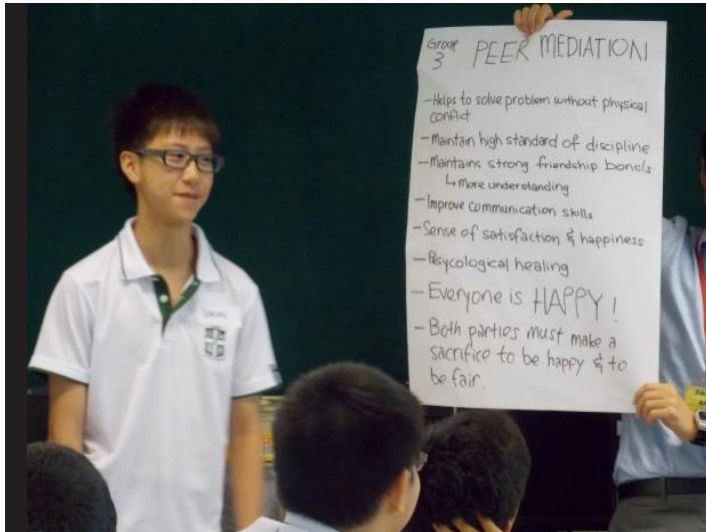 Group 3 PEER MEDIATION
- Helps to solve problem without physical
conflict
- Maintain high standard of discipline
- Maintains strong friendship bonds
↳ more understanding
- Improve communication skills
- Sense of satisfaction & happiness
- Psycological healing
- Everyone is HAPPY!
- Both parties must make a
sacrifice to be happy & to
be fair.